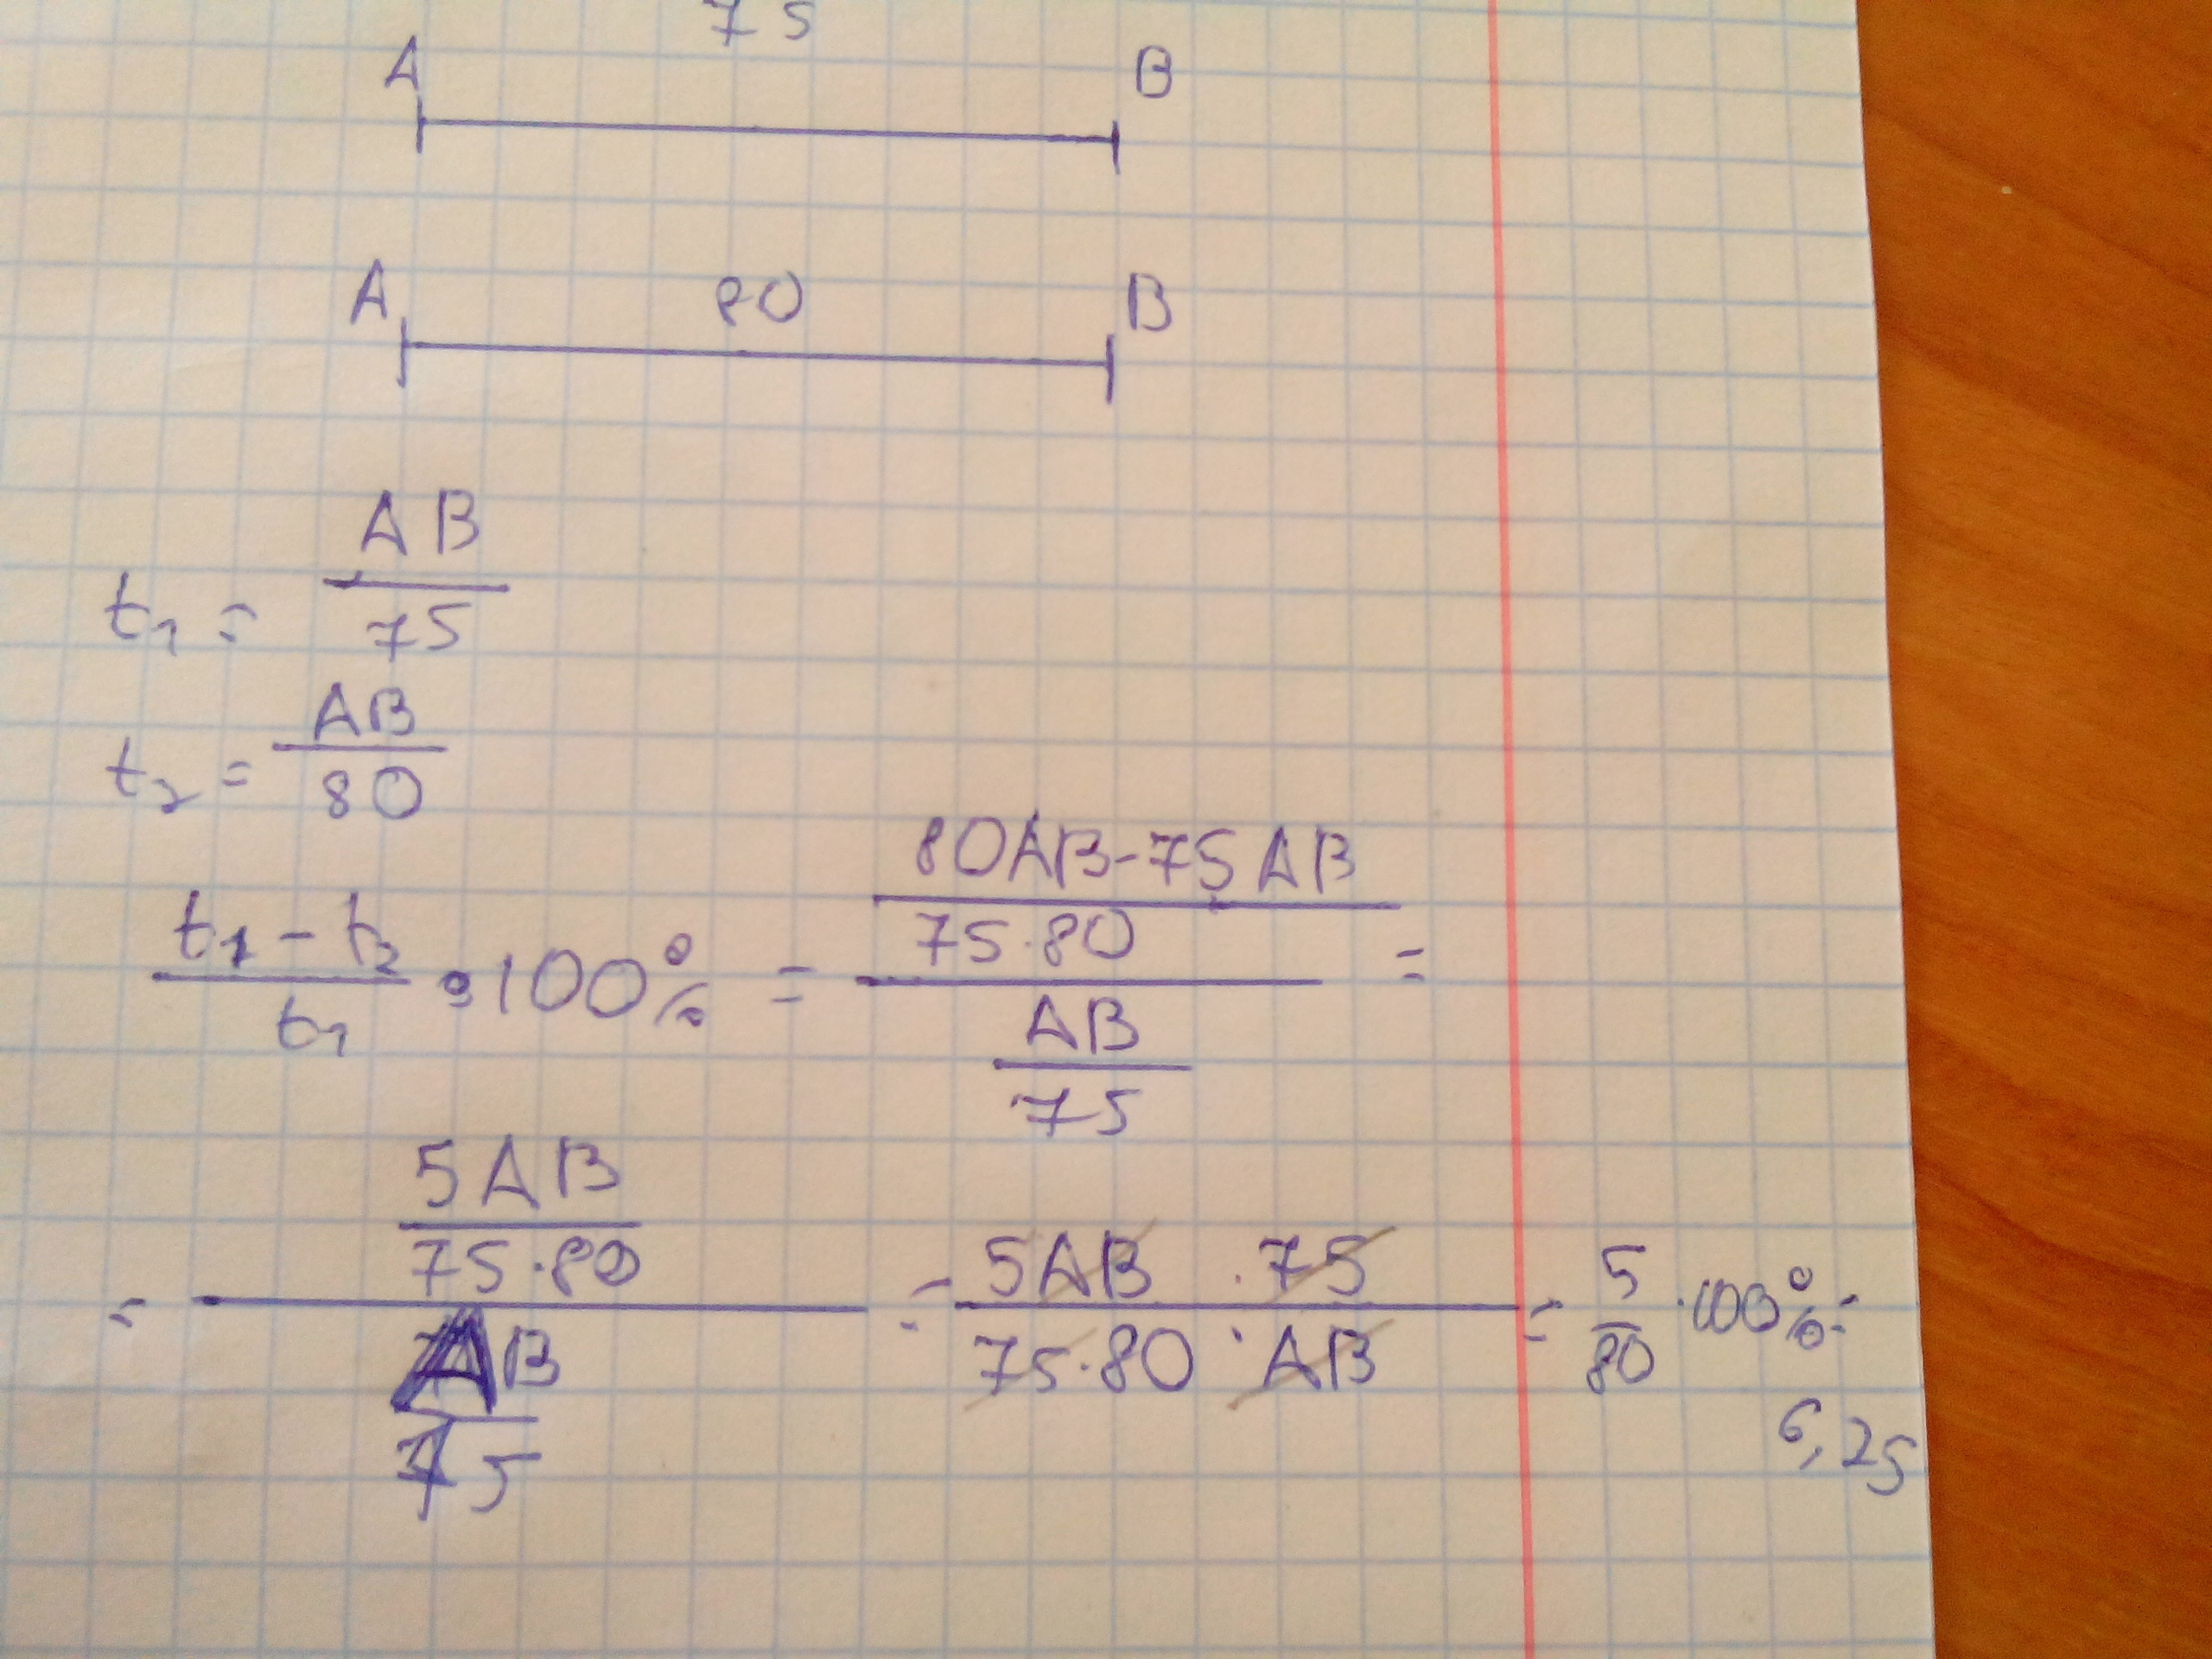 75
A B
A 80 B
t₁ = AB/75
t₂ = AB/80
(t₁ - t₂)/t₁ · 100% = ((80AB - 75AB)/(75·80))/(AB/75) =
= (5AB/(75·80))/(AB/75) = (5AB · 75)/(75·80 · AB) = 5/80 · 100% =
6,25